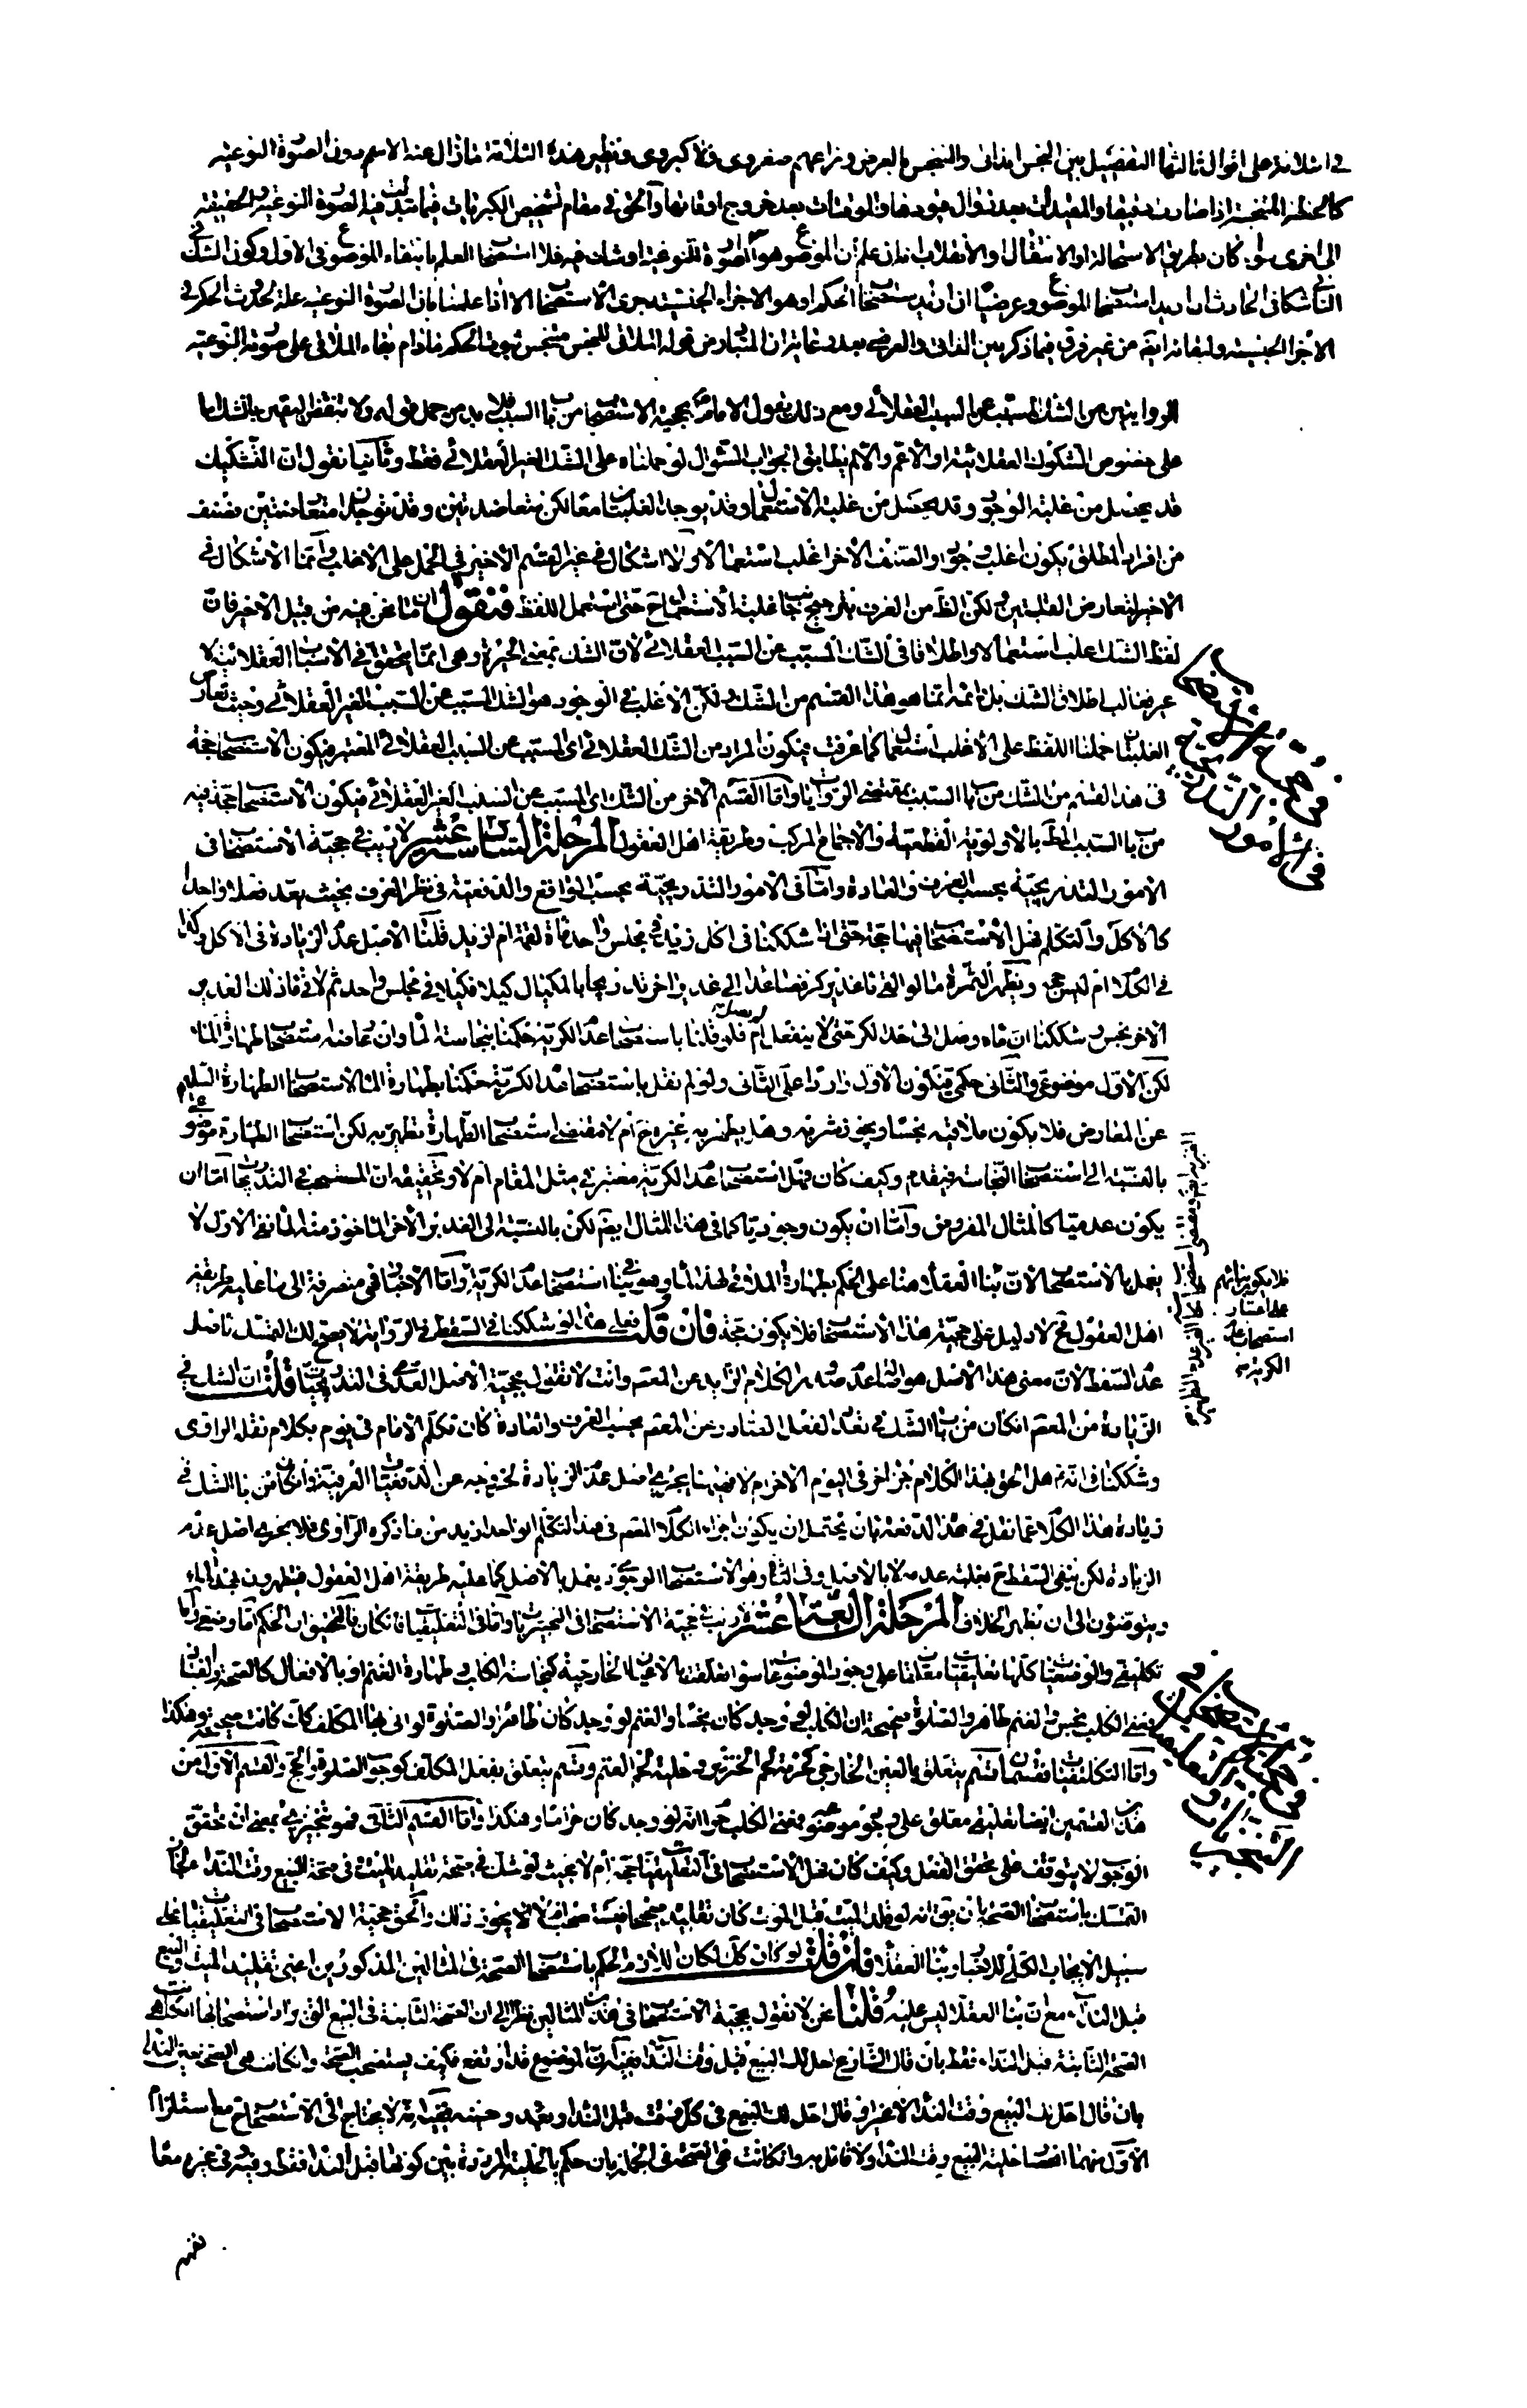 في اسلافه على اقوال ثالثها التفضيل بين النجس الذاتى والنجس بالعرض ونزاعهم صغروى لا كبروى ونظير هذه الثلاثة ما زال عنه الاسم دون الصورة النوعيه
كالحنطة المتنجسة اذا صارت دقيقا والمقيدات بعد زوال قيودها والموقتات بعد خروج اوقاتها والحق في مقام تشخيص الكبريات فيما تبدل فيه الصورة النوعية الحقيقية
الى اخرى سواء كان بطريق الاستحالة او الانتقال والانقلاب انه ان علم ان الموضوع هو الصورة النوعية او شك فيه فلا استصحاب للعلم بانتفاء الموضوع في الاول وكون الشك في
الثانى شكا في الحادث ان اريد استصحاب الموضوع وعرضيا ان اريد استصحاب الحكم او هو الاجزاء الجنسية جرى الاستصحاب الا اذا علمنا بان الصورة النوعية علة لحدوث الحكم في
الاجزاء الجنسية ولبقائه ايضا من غير فرق فيما ذكر بين الذاتى والعرضى بعد
الروايتين من الشك المسبب عن السبب العقلائى ومع ذلك يقول الامام بحجية الاستصحاب من باب السبب فلا بد من حمل قوله ولا ينقض اليقين بالشك اما
على خصوص الشكوك العقلائية او الاعم والا لم يطابق الجواب السؤال لو حملناه على الشك الغير العقلائى فقط وثانيا نقول ان التشكيك
قد يحصل من غلبة الوجود وقد يحصل من غلبة الاستعمال وقد يوجد الغلبتان معا لكن متعاضدتين وقد توجدان متعارضتين فصنف
من افراد المطلق يكون اغلب وجودا والصنف الاخر اغلب استعمالا ولا اشكال في غير القسم الاخير في الحمل على الاغلب وانما الاشكال في
الاخير لتعارض الغلبتين لكن الظ من العرف ترجيح جانب غلبة الاستعمال ح حتى استعمل اللفظ فنقول ان ما نحن فيه من قبيل الاخير فان
لفظ الشك اغلب استعمالا واطلاقا في الشك المسبب عن السبب العقلائى لان الشك بمعنى الحيرة وهى انما يتحقق في الاسباب العقلائية لا
غير فغالب اطلاق الشك بل دائمه انما هو هذا القسم من الشك ولكن الاغلب في الوجود هو الشك المسبب عن السبب الغير العقلائى وحيث تعارض
الغلبتان حملنا اللفظ على الاغلب استعمالا كما عرفت فيكون المراد من الشك العقلائى اى المسبب عن السبب العقلائى المعتبر فيكون الاستصحاب حجة
في هذا القسم من الشك من باب السبب بمقتضى الروايات واما القسم الاخر من الشك اى المسبب عن السبب الغير العقلائى فيكون الاستصحاب حجة فيه
من باب السبب الظ بالاولوية القطعية والاجماع المركب وطريقة اهل العقول المرحلة السابعة عشر لا ريب في حجية الاستصحاب في
الامور التدريجية بحسب العرف والعادة واما في الامور التدريجية بحسب الواقع والدفعية في نظر العرف بحيث يعد فعلا واحدا
كالاكل والتكلم فهل الاستصحاب فيها حجة حتى اذا شككنا في اكل زيد في مجلس واحد مأة لقمة ام ازيد قلنا الاصل عدم الزيادة في الاكل وكذا
في الكلام ام ليس بحجة ويظهر الثمرة فيما لو القى ماء غدير كر فصاعدا الى غدير اخر تدريجا بالمكيال كيلا فكيلا في مجلس واحد ثم لاقى ماء ذلك الغدير
الاخر نجس وشككنا ان ماه وصل الى حد الكر حتى لا ينفعل ام لا فلو قلنا باستصحاب عدم الكرية حكمنا بنجاسة الماء وان عارضه استصحاب طهارة الماء
لكن الاول موضوعى والثانى حكمى فيكون الاول واردا على الثانى ولو لم نقل باستصحاب عدم الكرية حكمنا بطهارة الماء لاستصحاب الطهارة السليم
عن المعارض فلا يكون ملاقيه نجسا ويجوز شربه وهل يطهر به غيره ح ام لا مقتضى استصحاب الطهارة تطهيره لكن استصحاب الطهارة موضوعى
بالنسبة الى استصحاب النجاسة فيقدم وكيف كان فهل استصحاب عدم الكرية معتبر في مثل المقام ام لا وتحقيقه ان المستصحب في التدريجيات اما ان
يكون عدميا كالمثال المفروض واما ان يكون وجوديا كما في هذا المثال ايضا لكن بالنسبة الى الغدير الاخر الماخوذ منه الماء ففى الاول لا
يعمل بالاستصحاب لان بناء العقلاء هنا على الحكم بطهارة الملاقى لهذا الماء وهو ينافى استصحاب عدم الكرية واما الاخبار فهى منصرفة الى ما عليه طريقة
اهل العقول فح لا دليل على حجية هذا الاستصحاب فلا يكون حجة فان قلت فعلى هذا لو شككنا في السقط في الرواية لا يصح لك التمسك باصل
عدم السقط لان معنى هذا الاصل هو البناء على عدم صدور الكلام الزايد عن المعصوم وانت لا تقول بحجية الاصل العدمى في التدريجيات قلت ان الشك في
الزيادة من المعصوم ان كان من باب الشك في تعدد الفعل الصادر عن المعصوم بحسب العرف والعادة كان تكلم الامام في يوم بكلام نقله الراوى
وشككنا في انه هل الحق بهذا الكلام جزء اخر في اليوم الاخر ام لا فهنا يجرى اصل عدم الزيادة لخروجه عن الدفعيات العرفية وان كان من باب الشك في
زيادة هذا الكلام عما نقل في هذه الدفعة بان يحتمل ان يكون اجزاء الكلام المعصوم في هذا التكلم الواحد ازيد من ما ذكره الراوى فلا يجرى اصل عدم
الزيادة لكن نفى السقط ح بغلبة عدمه لا بالاصل وفى الثانى وهو الاستصحاب الوجودى يعمل بالاصل كما عليه طريقة اهل العقول
ويتوضئون الى ان يظهر الخلاف المرحلة الثامنة عشر لا ريب في حجية الاستصحاب في التنجيزيات واما في التعليقيات فان كان فالتحقيق ان الحكم اما وضعى او
تكليفى والوضعيات كلها تعليقيات معلقات على وجود الموضوعات سواء تعلقت بالاعيان الخارجية كنجاسة الكلب وطهارة الغنم او بالافعال كالصحة والفساد
فمعنى الكلب نجس والغنم طاهر والصلوة صحيحة ان الكلب لو وجد كان نجسا والغنم لو وجد كان طاهرا والصلوة لو اتى بها المكلف كانت صحيحة وهكذا
واما التكليفيات فقسمان قسم يتعلق بالعين الخارجى كحرمة لحم الخنزير وحلية لحم الغنم وقسم يتعلق بفعل المكلف كوجوب الصلوة والحج والقسم الاول من
هذين القسمين ايضا تعليقى معلق على وجود موضوعه فمعنى الكلب حرام انه لو وجد كان حراما وهكذا واما القسم الثانى فهو تنجيزى بمعنى ان تحقق
الوجوب لا يتوقف على تحقق الفعل وكيف كان فهل الاستصحاب في التعليقيات حجة ام لا بحيث لو شك في صحة تقليد الميت وفى صحة البيع وقت النداء جاز
التمسك باستصحاب الصحة بان يق انه لو قلد الميت قبل الموت كان تقليده صحيحا فيستصحب ام لا يجوز ذلك والحق حجية الاستصحاب في التعليقيات على
سبيل الايجاب الكلى للاخبار وبناء العقلاء فان قلت لو كان كك لكان اللازم الحكم باستصحاب الصحة في المثالين المذكورين اعنى تقليد الميت والبيع
قبل النداء مع ان بناء العقلاء ليس عليه قلنا نحن لا نقول بحجية الاستصحاب في هذين المثالين نظرا الى ان الصحة الثابتة في البيع التى يراد استصحابها ان كانت هى
الصحة الثابتة قبل النداء فقط بان قال الشارع احل لك البيع قبل وقت النداء ان الموضوع قد ارتفع فكيف يستصحب الصحة وان كانت هى الصحة بعد النداء
بان قال احل لك البيع وقت النداء لا غير او قال احل لك البيع في كل وقت قبل النداء وبعده وحينه لا يحتاج الى الاستصحاب مع استلزام
الاول منهما اختصاص حلية البيع وقت النداء ولا قائل به وان كانت هى الصحة في الجملة بان حكم بالحلية المرددة بين كونها قبل النداء فقط وفى غيره معا
فلا يكون بنائهم
على اعتبار
استصحاب عدم
الكرية